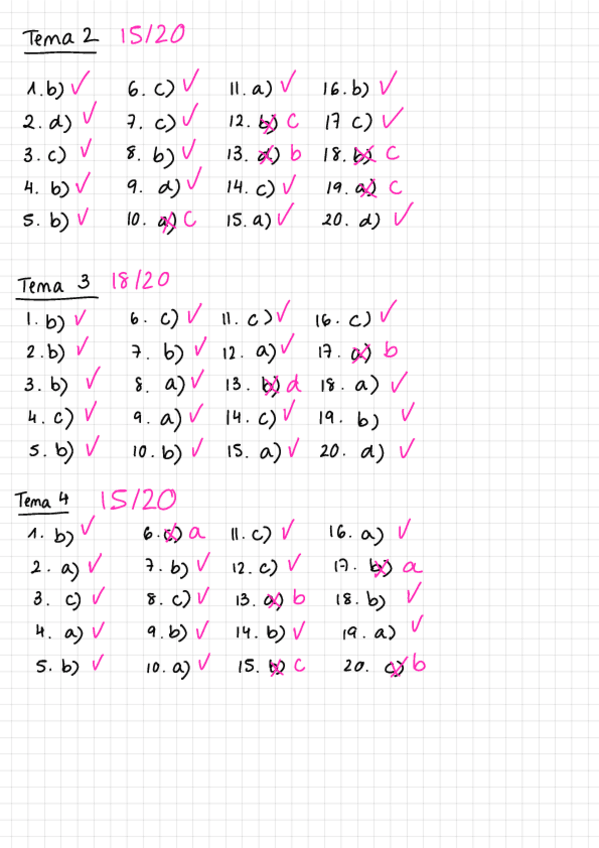 Tema 2 15/20
1. b) ✓ 6. c) ✓ 11. a) ✓ 16. b) ✓
2. d) ✓ 7. c) ✓ 12. b) c 17 c) ✓
3. c) ✓ 8. b) ✓ 13. d) b 18. b) c
4. b) ✓ 9. d) ✓ 14. c) ✓ 19. a) c
5. b) ✓ 10. a) c 15. a) ✓ 20. d) ✓
Tema 3 18/20
1. b) ✓ 6. c) ✓ 11. c) ✓ 16. c) ✓
2. b) ✓ 7. b) ✓ 12. a) ✓ 17. a) b
3. b) ✓ 8. a) ✓ 13. b) d 18. a) ✓
4. c) ✓ 9. a) ✓ 14. c) ✓ 19. b) ✓
5. b) ✓ 10. b) ✓ 15. a) ✓ 20. d) ✓
Tema 4 15/20
1. b) ✓ 6. c) a 11. c) ✓ 16. a) ✓
2. a) ✓ 7. b) ✓ 12. c) ✓ 17. b) a
3. c) ✓ 8. c) ✓ 13. a) b 18. b) ✓
4. a) ✓ 9. b) ✓ 14. b) ✓ 19. a) ✓
5. b) ✓ 10. a) ✓ 15. b) c 20. c) b